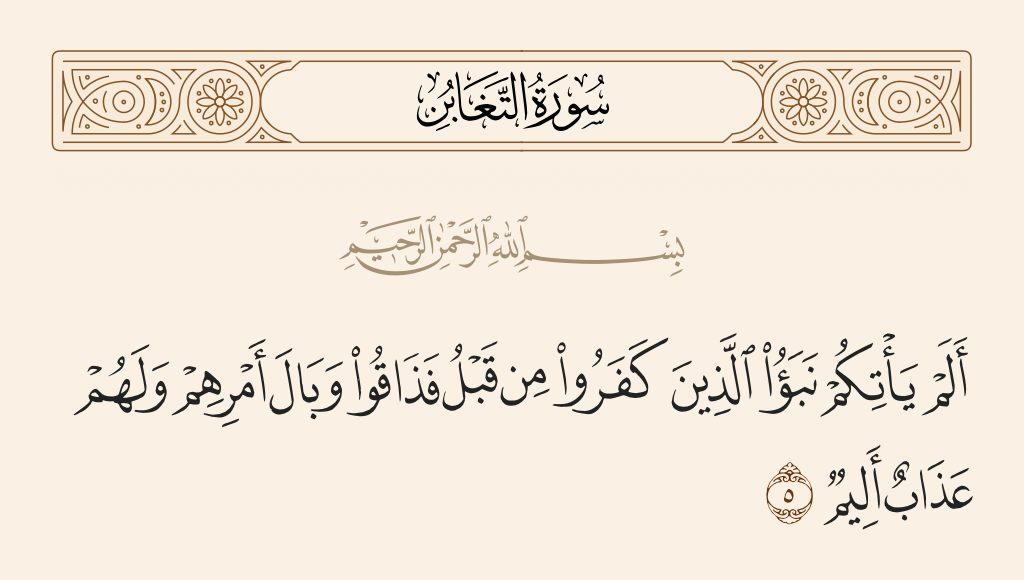 سُورَةُ التَّغَابُنِ
بِسْمِ ٱللَّهِ ٱلرَّحْمَٰنِ ٱلرَّحِيمِ
أَلَمْ يَأْتِكُمْ نَبَؤُا۟ ٱلَّذِينَ كَفَرُوا۟ مِن قَبْلُ فَذَاقُوا۟ وَبَالَ أَمْرِهِمْ وَلَهُمْ
عَذَابٌ أَلِيمٌ ٥